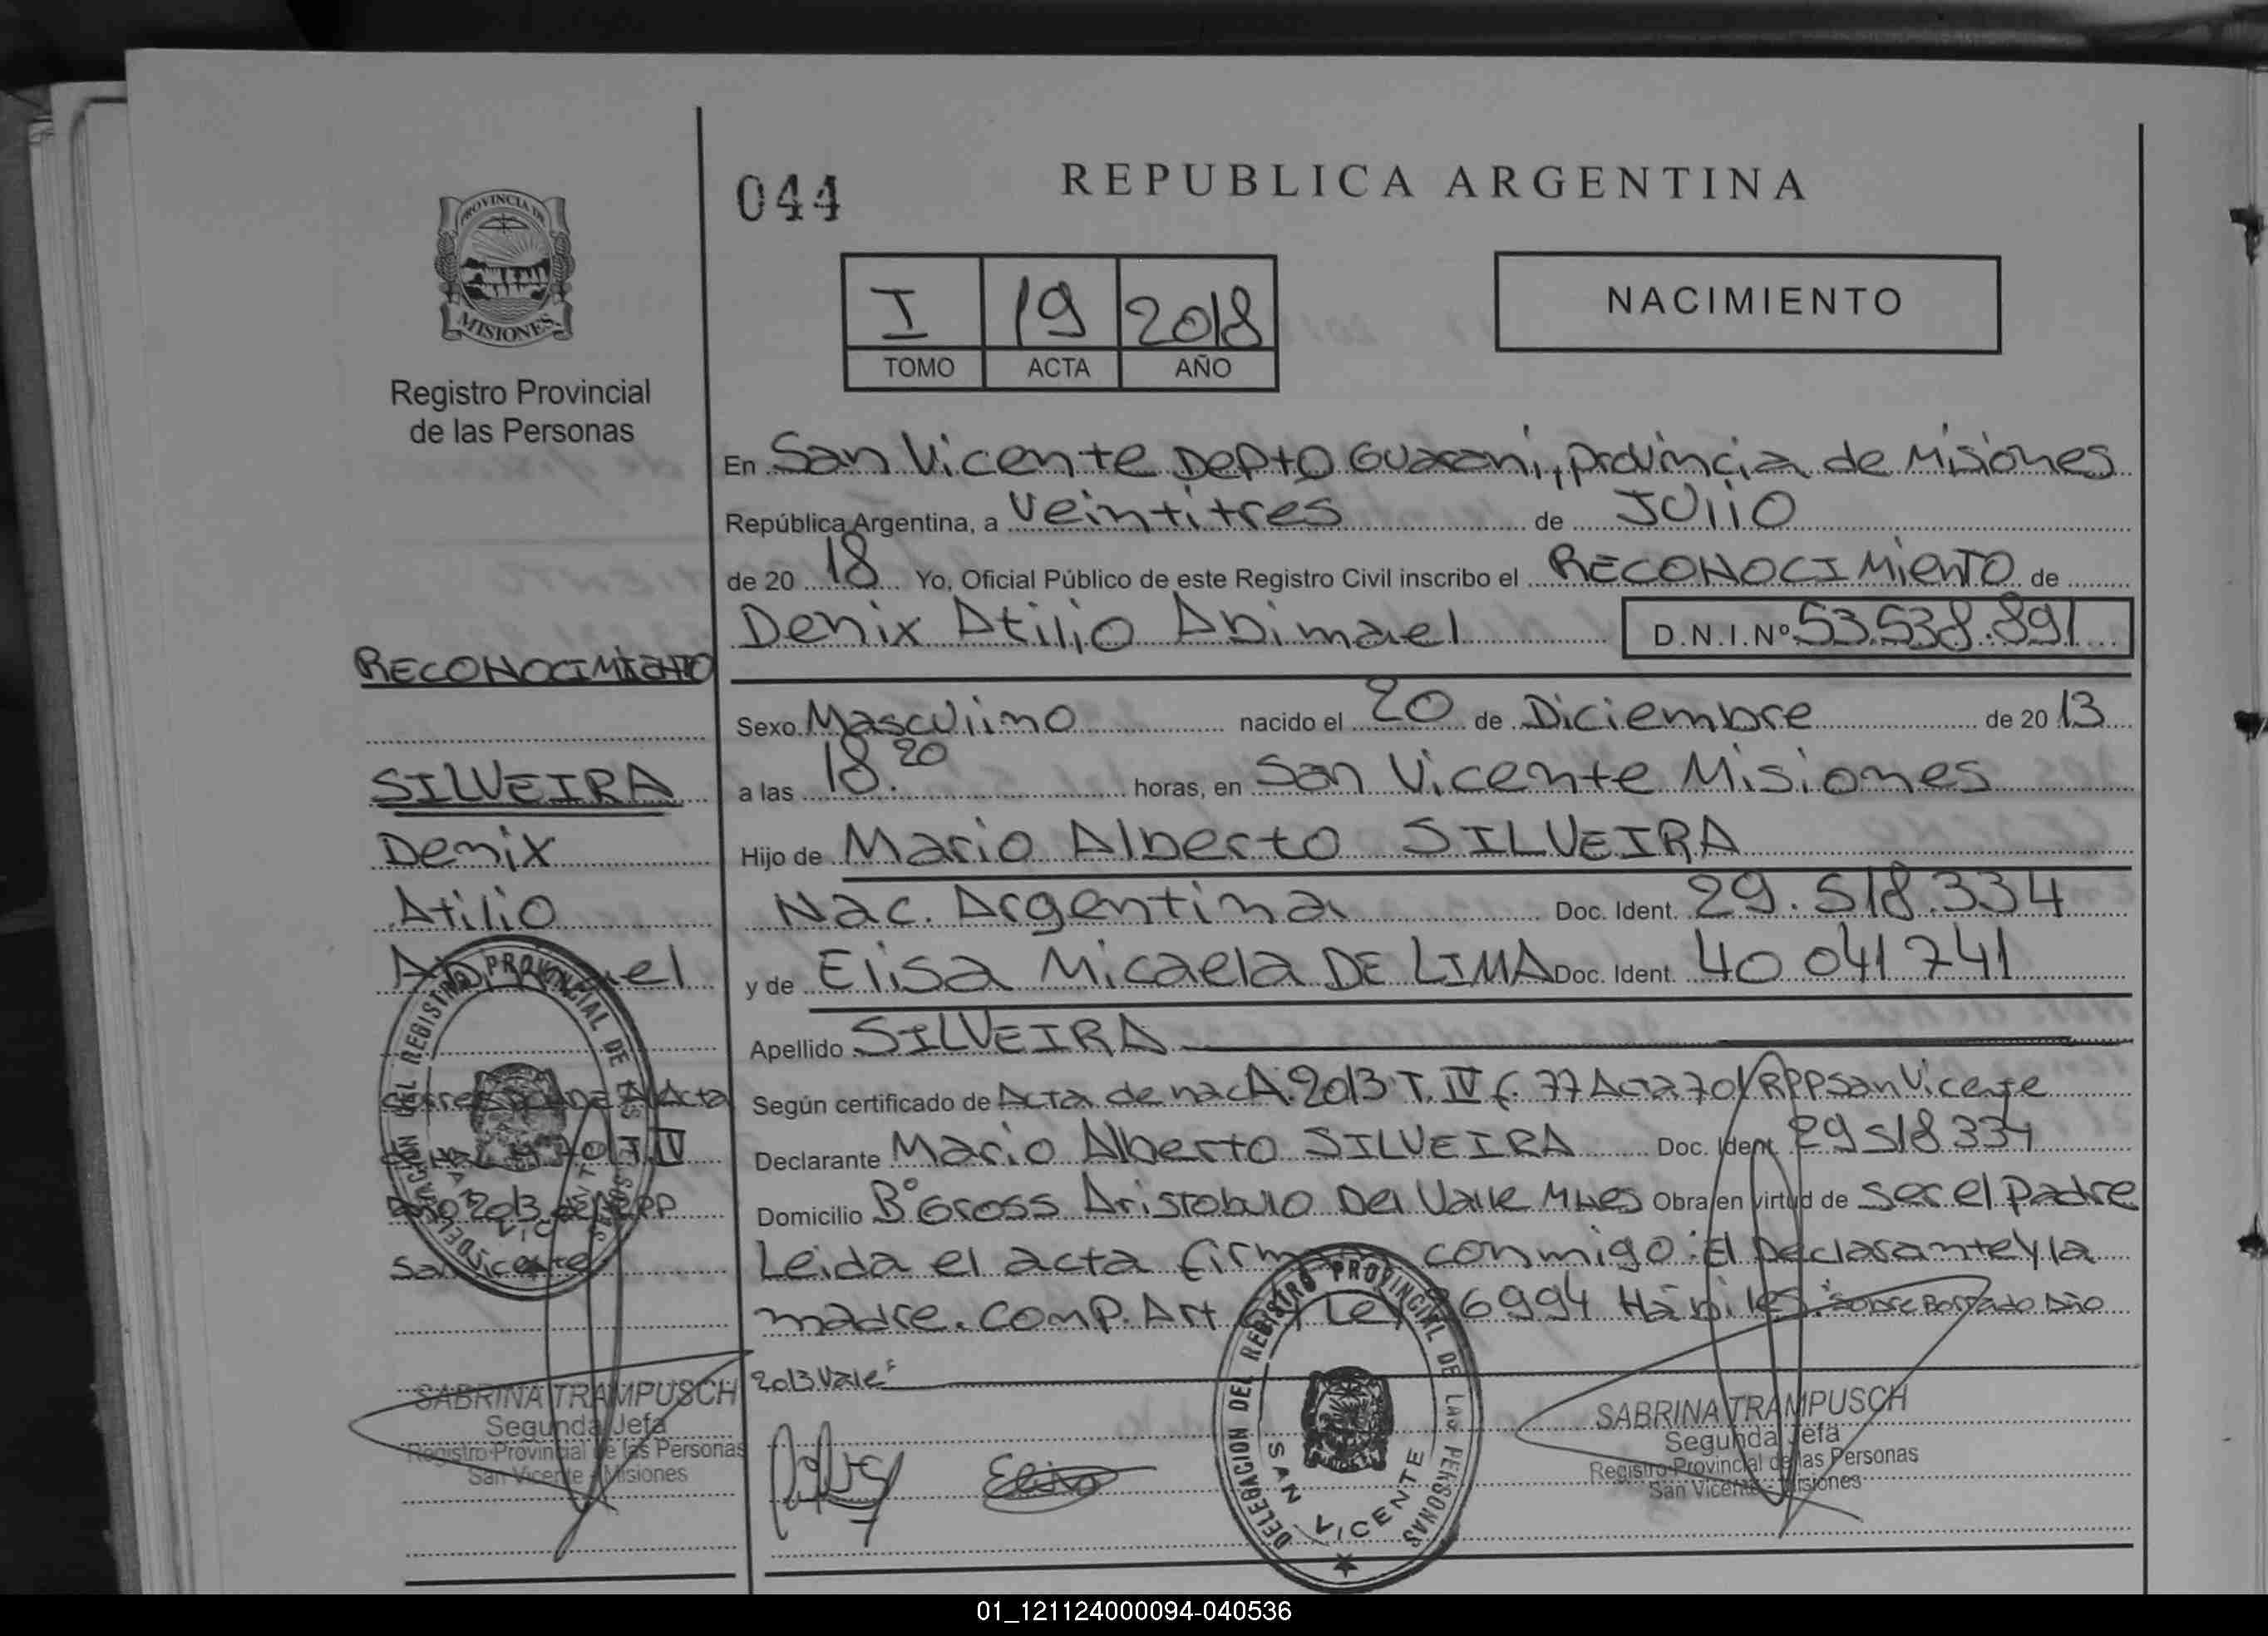 PROVINCIA DE
MISIONES
Registro Provincial
de las Personas
RECONOCIMIENTO
SILVEIRA
Denix
Atilio
Abimael
corresponde Al Acta
de Nac 70 T IV
Año 2013 del RPP
San Vicente
SABRINA TRAMPUSCH
Segunda Jefa
Registro Provincial de las Personas
San Vicente - Misiones
044
REPUBLICA ARGENTINA
I 19 2018
TOMO ACTA AÑO
NACIMIENTO
En San Vicente Depto Guarani, provincia de Misiones
República Argentina, a veintitres de Julio
de 20 18 Yo, Oficial Público de este Registro Civil inscribo el RECONOCIMIENTO de
Denix Atilio Abimael D.N.I.Nº 53.538.891
Sexo Masculino nacido el 20 de Diciembre de 20 13
a las 18.20 horas, en San Vicente Misiones
Hijo de Mario Alberto SILVEIRA
Nac. Argentina Doc. Ident. 29.518.334
y de Elisa Micaela DE LIMA Doc. Ident. 40 041 741
Apellido SILVEIRA
Según certificado de Acta de nac A.2013 T. IV f. 77 Acta 701 RPP San Vicente
Declarante Mario Alberto SILVEIRA Doc. Ident. 29518334
Domicilio Bº Gross Aristobulo Del Valle Mnes Obra en virtud de ser el Padre
Leida el acta firman conmigo: El Declarante y la
madre. Comp. Art Ley 26994 Hábiles. "sobre Borrado Año
2013 Vale"
Elisa
DELEGACION DEL REGISTRO PROVINCIAL DE LAS PERSONAS
SAN VICENTE
SABRINA TRAMPUSCH
Segunda Jefa
Registro Provincial de las Personas
San Vicente - Misiones
01_121124000094-040536